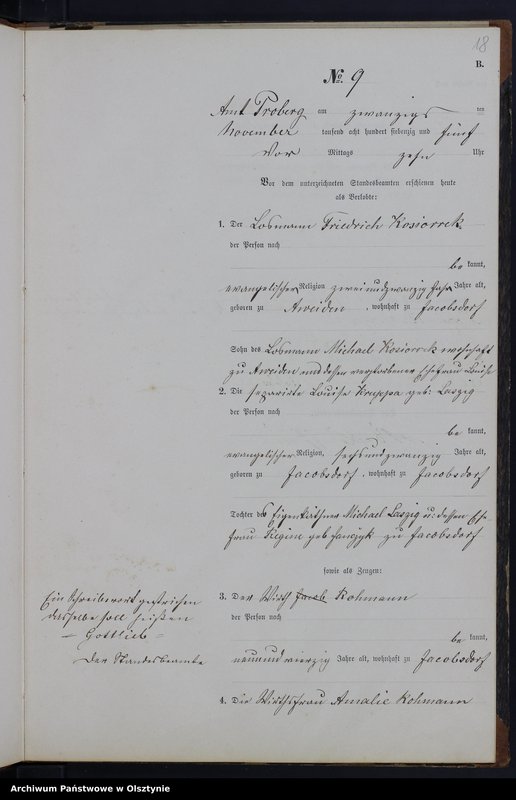 18
B.
No. 9
Amt Proberg am zwanzigsten
November tausend acht hundert siebenzig und fünf
Vor Mittags zehn Uhr
Vor dem unterzeichneten Standesbeamten erschienen heute
als Verlobte:
1. Der Losmann Friedrich Kosiorrek
der Person nach
be kannt,
evangelischer Religion zweiundzwanzig Jahre alt,
geboren zu Aweiden, wohnhaft zu Jacobsdorf
Sohn des Losmann Michael Kosiorrek wohnhaft
zu Aweiden und dessen verstorbener Ehefrau Louise
2. Die separirte Louise Kruppa geb: Laszig
der Person nach
be kannt,
evangelischer Religion, sechsundzwanzig Jahre alt,
geboren zu Jacobsdorf, wohnhaft zu Jacobsdorf
Tochter des Eigenkäthner Michael Laszig u: dessen Ehe-
frau Regine geb zu Jacobsdorf
sowie als Zeugen:
3. Der Wirth Jacob Rohmann
der Person nach
be kannt,
neunundvierzig Jahre alt, wohnhaft zu Jacobsdorf
4. Die Wirthsfrau Amalie Rohmann
Ein Schreibewort gestrichen
dasselbe soll heißen
= Gottlieb =
Der Standesbeamte
Archiwum Państwowe w Olsztynie